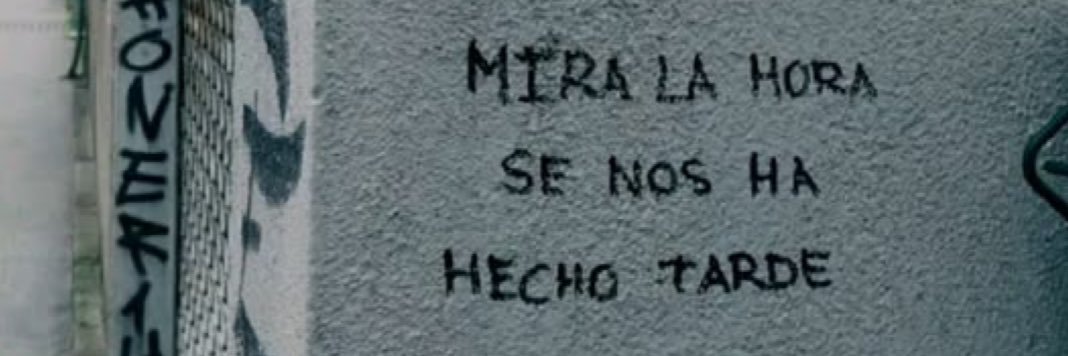 MIRA LA HORA
SE NOS HA
HECHO TARDE